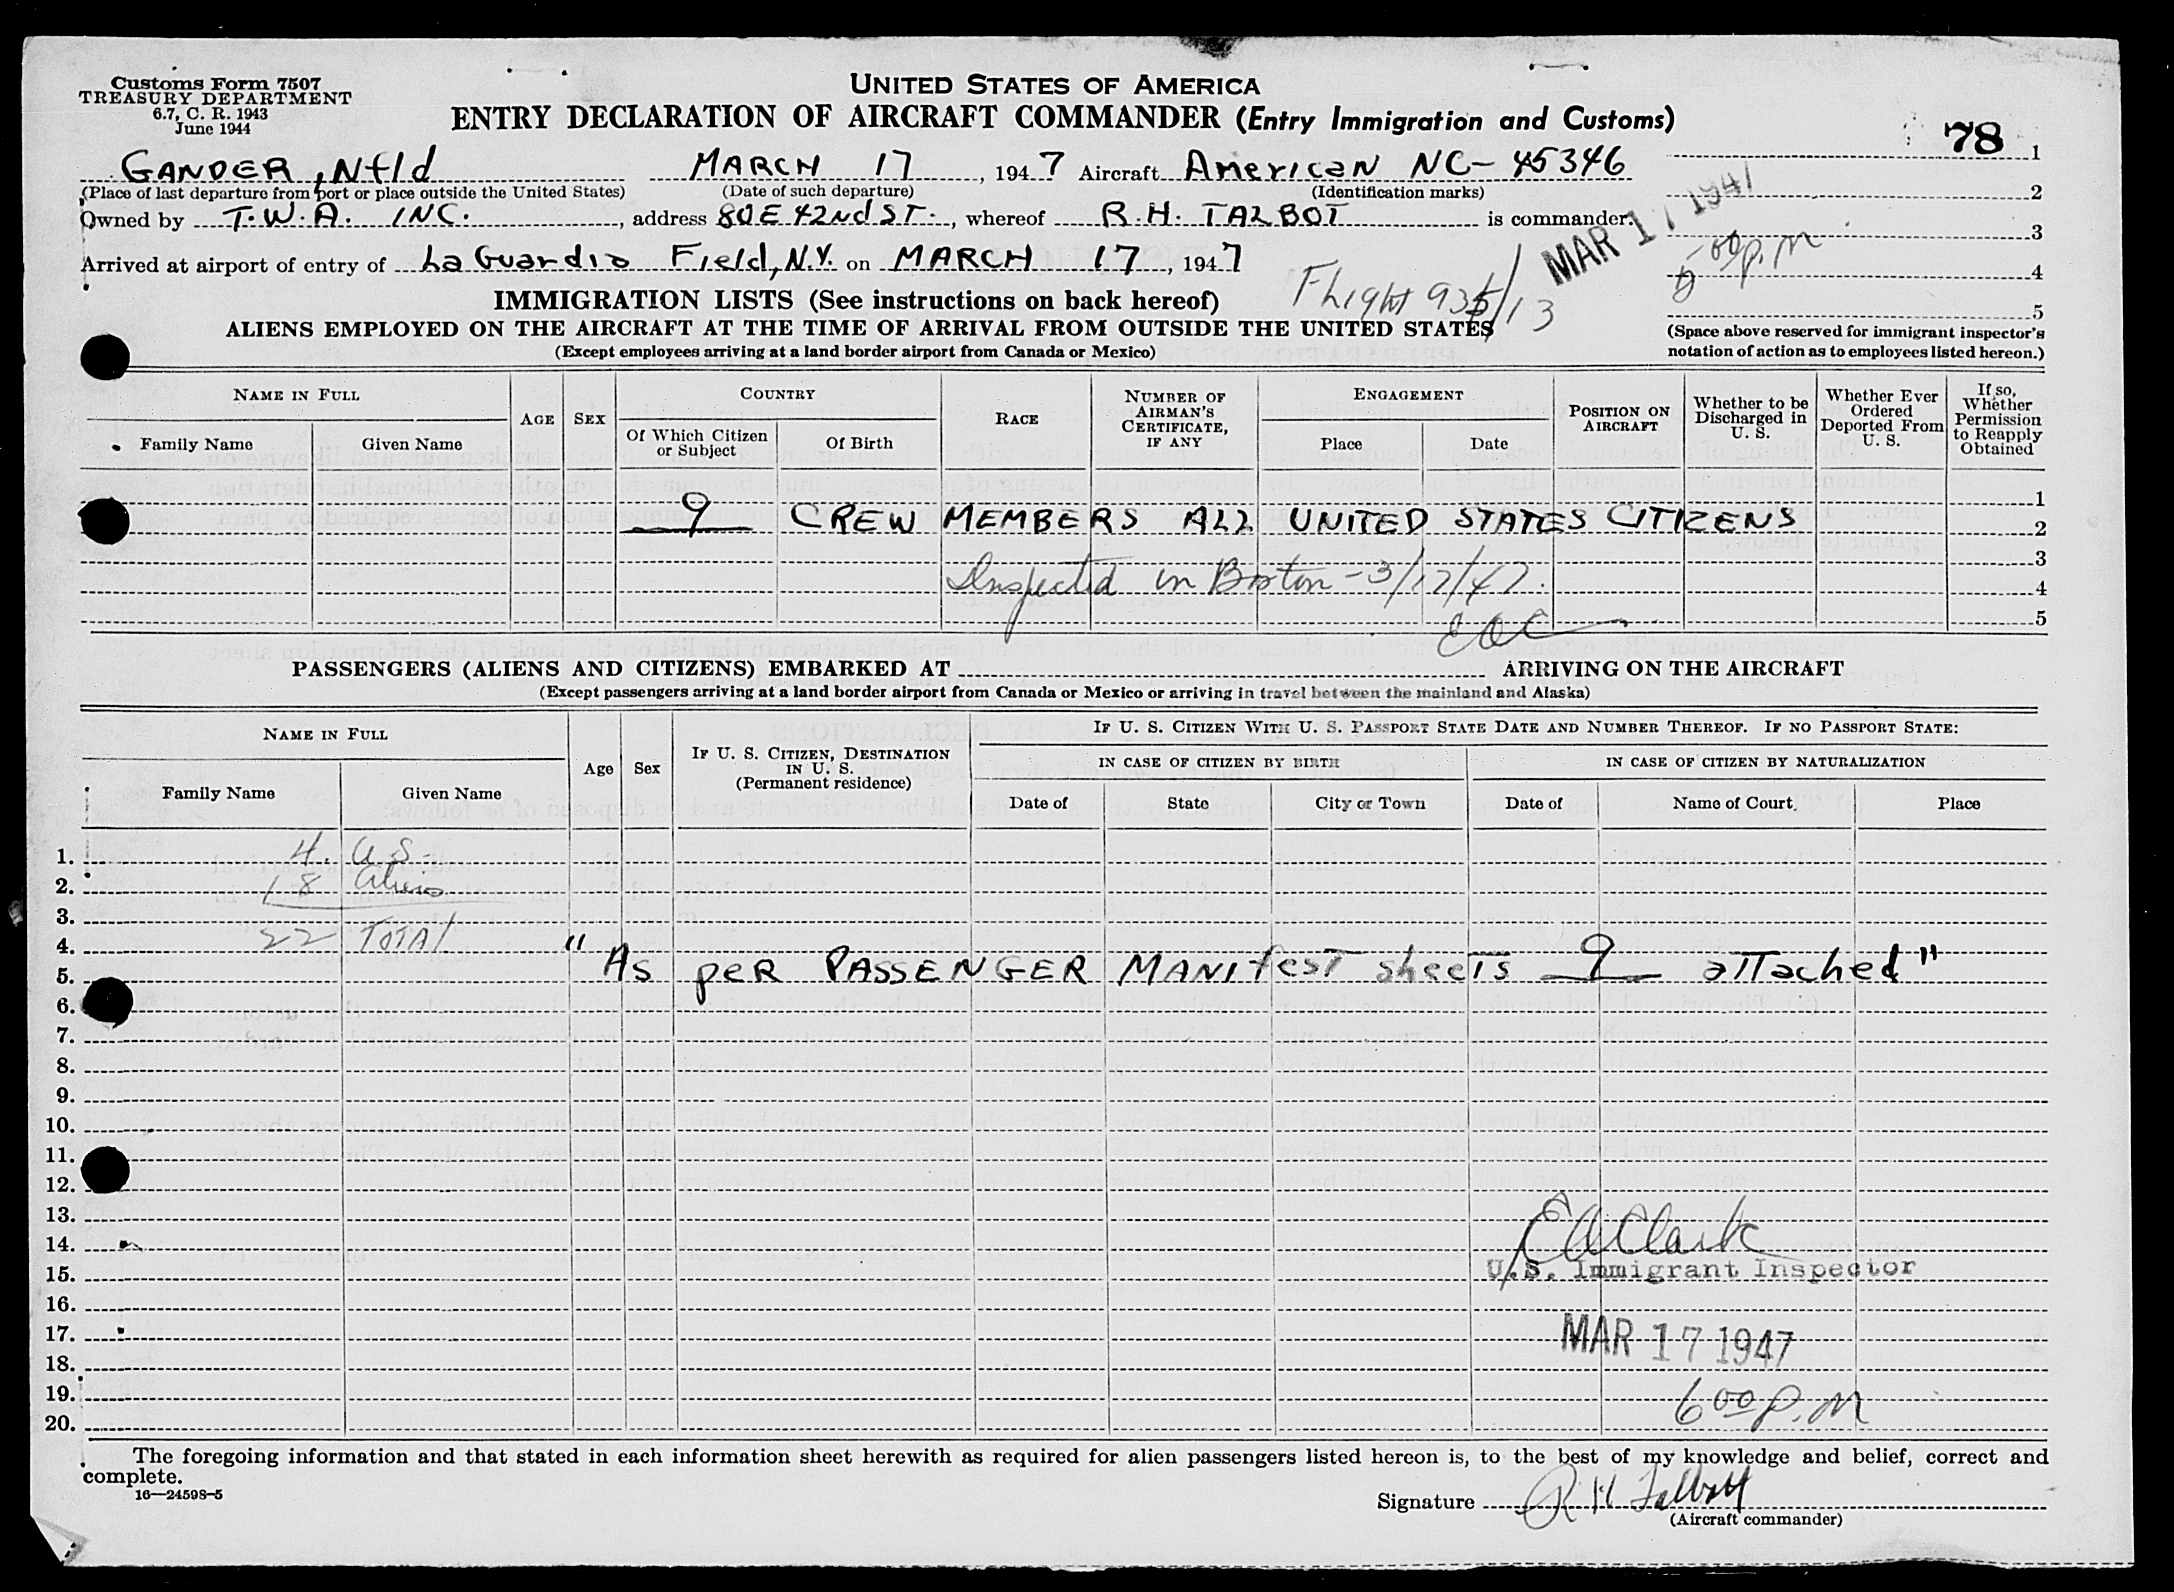 Customs Form 7507
TREASURY DEPARTMENT
6.7, C. R. 1943
June 1944
UNITED STATES OF AMERICA
ENTRY DECLARATION OF AIRCRAFT COMMANDER (Entry Immigration and Customs)
78 1
GANDER, Nfld MARCH 17, 1947 Aircraft American NC-45346
(Place of last departure from port or place outside the United States) (Date of such departure) (Identification marks)
2
Owned by T.W.A. INC., address 80 E 42nd ST., whereof R.H. TALBOT is commander.
MAR 17 1947
3
5 00 p.m
Arrived at airport of entry of LaGuardia Field, N.Y. on MARCH 17, 1947
4
IMMIGRATION LISTS (See instructions on back hereof)
Flight 935/13
5
ALIENS EMPLOYED ON THE AIRCRAFT AT THE TIME OF ARRIVAL FROM OUTSIDE THE UNITED STATES
(Space above reserved for immigrant inspector's
(Except employees arriving at a land border airport from Canada or Mexico)
notation of action as to employees listed hereon.)
NAME IN FULL
Family Name
Given Name
AGE
SEX
COUNTRY
Of Which Citizen or Subject
Of Birth
RACE
NUMBER OF AIRMAN'S CERTIFICATE, IF ANY
ENGAGEMENT
Place
Date
POSITION ON AIRCRAFT
Whether to be Discharged in U. S.
Whether Ever Ordered Deported From U. S.
If so, Whether Permission to Reapply Obtained
1
9 CREW MEMBERS ALL UNITED STATES CITIZENS 2
3
Inspected in Boston - 3/17/47. 4
EAC 5
PASSENGERS (ALIENS AND CITIZENS) EMBARKED AT ARRIVING ON THE AIRCRAFT
(Except passengers arriving at a land border airport from Canada or Mexico or arriving in travel between the mainland and Alaska)
NAME IN FULL
Family Name
Given Name
Age
Sex
IF U. S. CITIZEN, DESTINATION IN U. S.
(Permanent residence)
IF U. S. CITIZEN WITH U. S. PASSPORT STATE DATE AND NUMBER THEREOF. IF NO PASSPORT STATE:
IN CASE OF CITIZEN BY BIRTH
Date of
State
City or Town
IN CASE OF CITIZEN BY NATURALIZATION
Date of
Name of Court
Place
1. 4. US-
2. 18 Aliens
3.
4. 22 TOTAL
5. "As per PASSENGER MANIfesT sheeTs 9 aTTached"
6.
7.
8.
9.
10.
11.
12.
13.
14. EAClark
15. U.S. Immigrant Inspector
16.
17. MAR 17 1947
18.
19.
20. 6 00 p.m
The foregoing information and that stated in each information sheet herewith as required for alien passengers listed hereon is, to the best of my knowledge and belief, correct and
complete.
16—24598-5
Signature R H Talbott
(Aircraft commander)